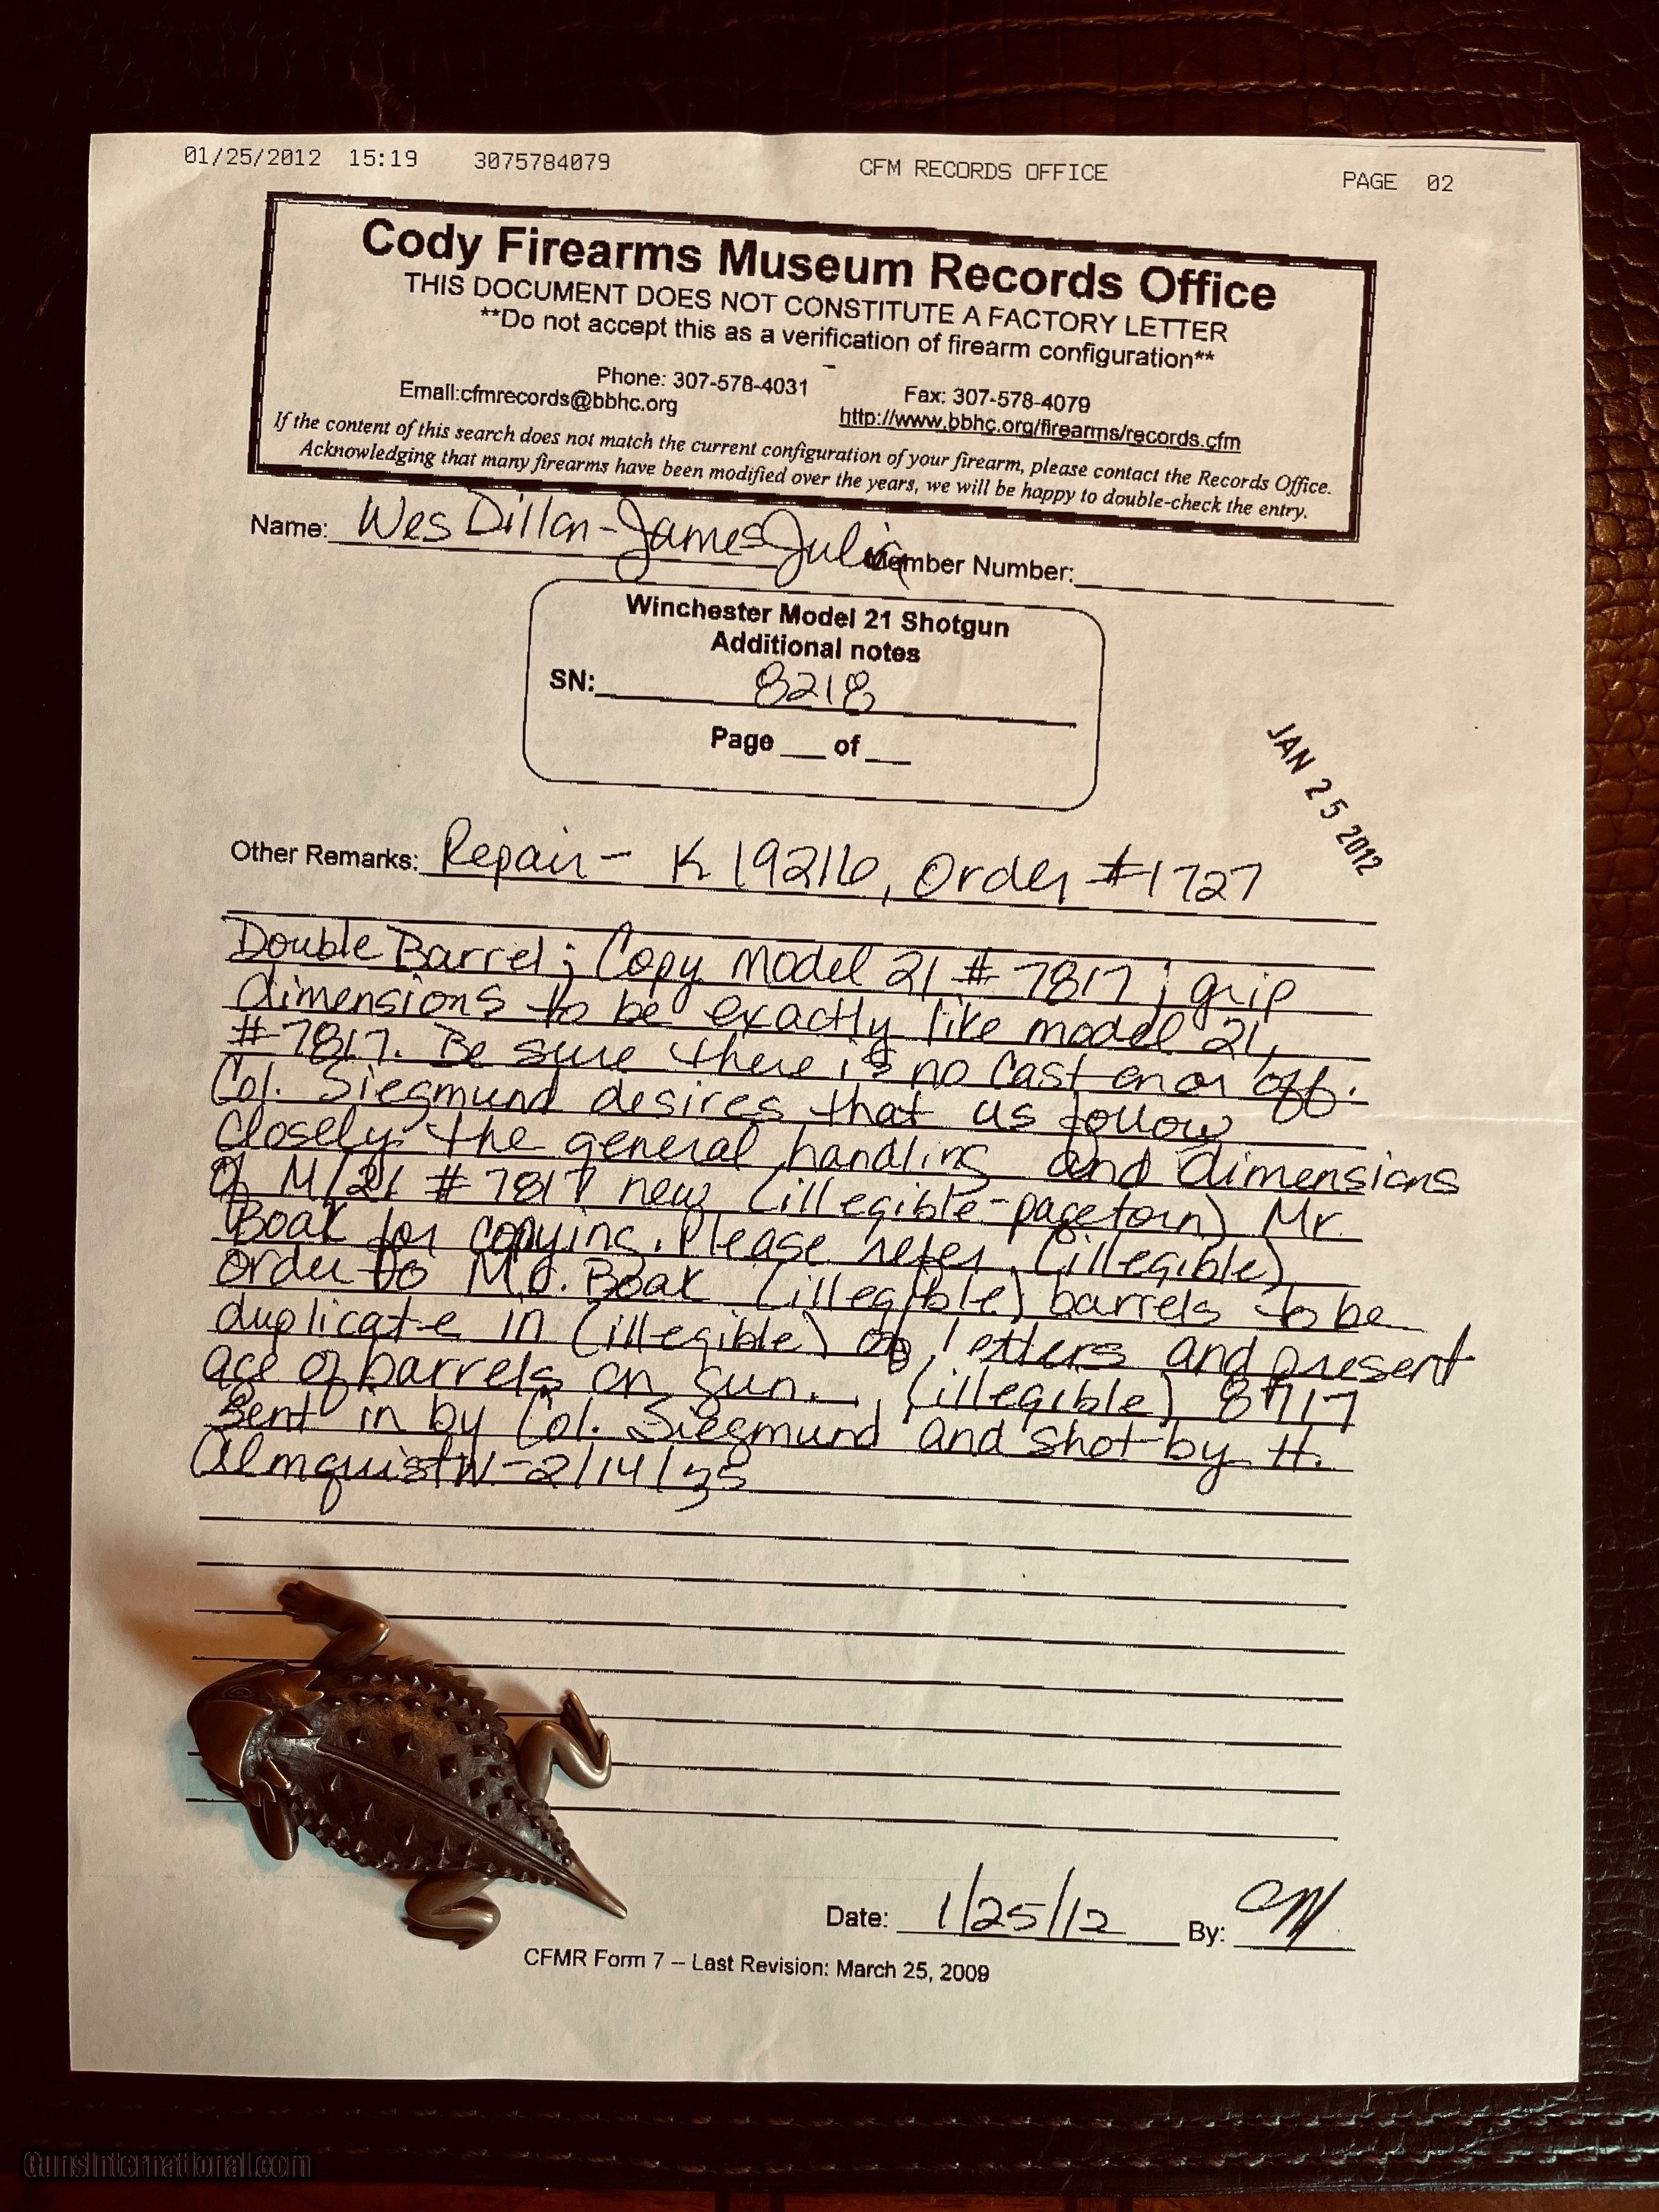 01/25/2012 15:19 3075784079 CFM RECORDS OFFICE PAGE 02
Cody Firearms Museum Records Office
THIS DOCUMENT DOES NOT CONSTITUTE A FACTORY LETTER
**Do not accept this as a verification of firearm configuration**
Phone: 307-578-4031 Fax: 307-578-4079
Email:cfmrecords@bbhc.org http://www.bbhc.org/firearms/records.cfm
If the content of this search does not match the current configuration of your firearm, please contact the Records Office.
Acknowledging that many firearms have been modified over the years, we will be happy to double-check the entry.
Name: Wes Dillon-James Julia Member Number:
Winchester Model 21 Shotgun
Additional notes
SN: 8218
Page ___ of ___
JAN 25 2012
Other Remarks: Repair - K 19216, Order #1727
Double Barrel; Copy Model 21 # 7817; grip
dimensions to be exactly like model 21,
#7817. Be sure there is no cast on or off.
Col. Siegmund desires that us follow
closely the general handling and dimensions
of M/21 # 7817 new (illegible-page torn) Mr.
Boak for copying. Please refer (illegible)
order to Mr. Boak (illegible) barrels to be
duplicate in (illegible) of letters and present
ace of barrels on gun. (illegible) 8717
Sent in by Col. Siegmund and shot by H.
Almquist W-2/14/35
Date: 1/25/12 By:
CFMR Form 7 – Last Revision: March 25, 2009
GunsInternational.com